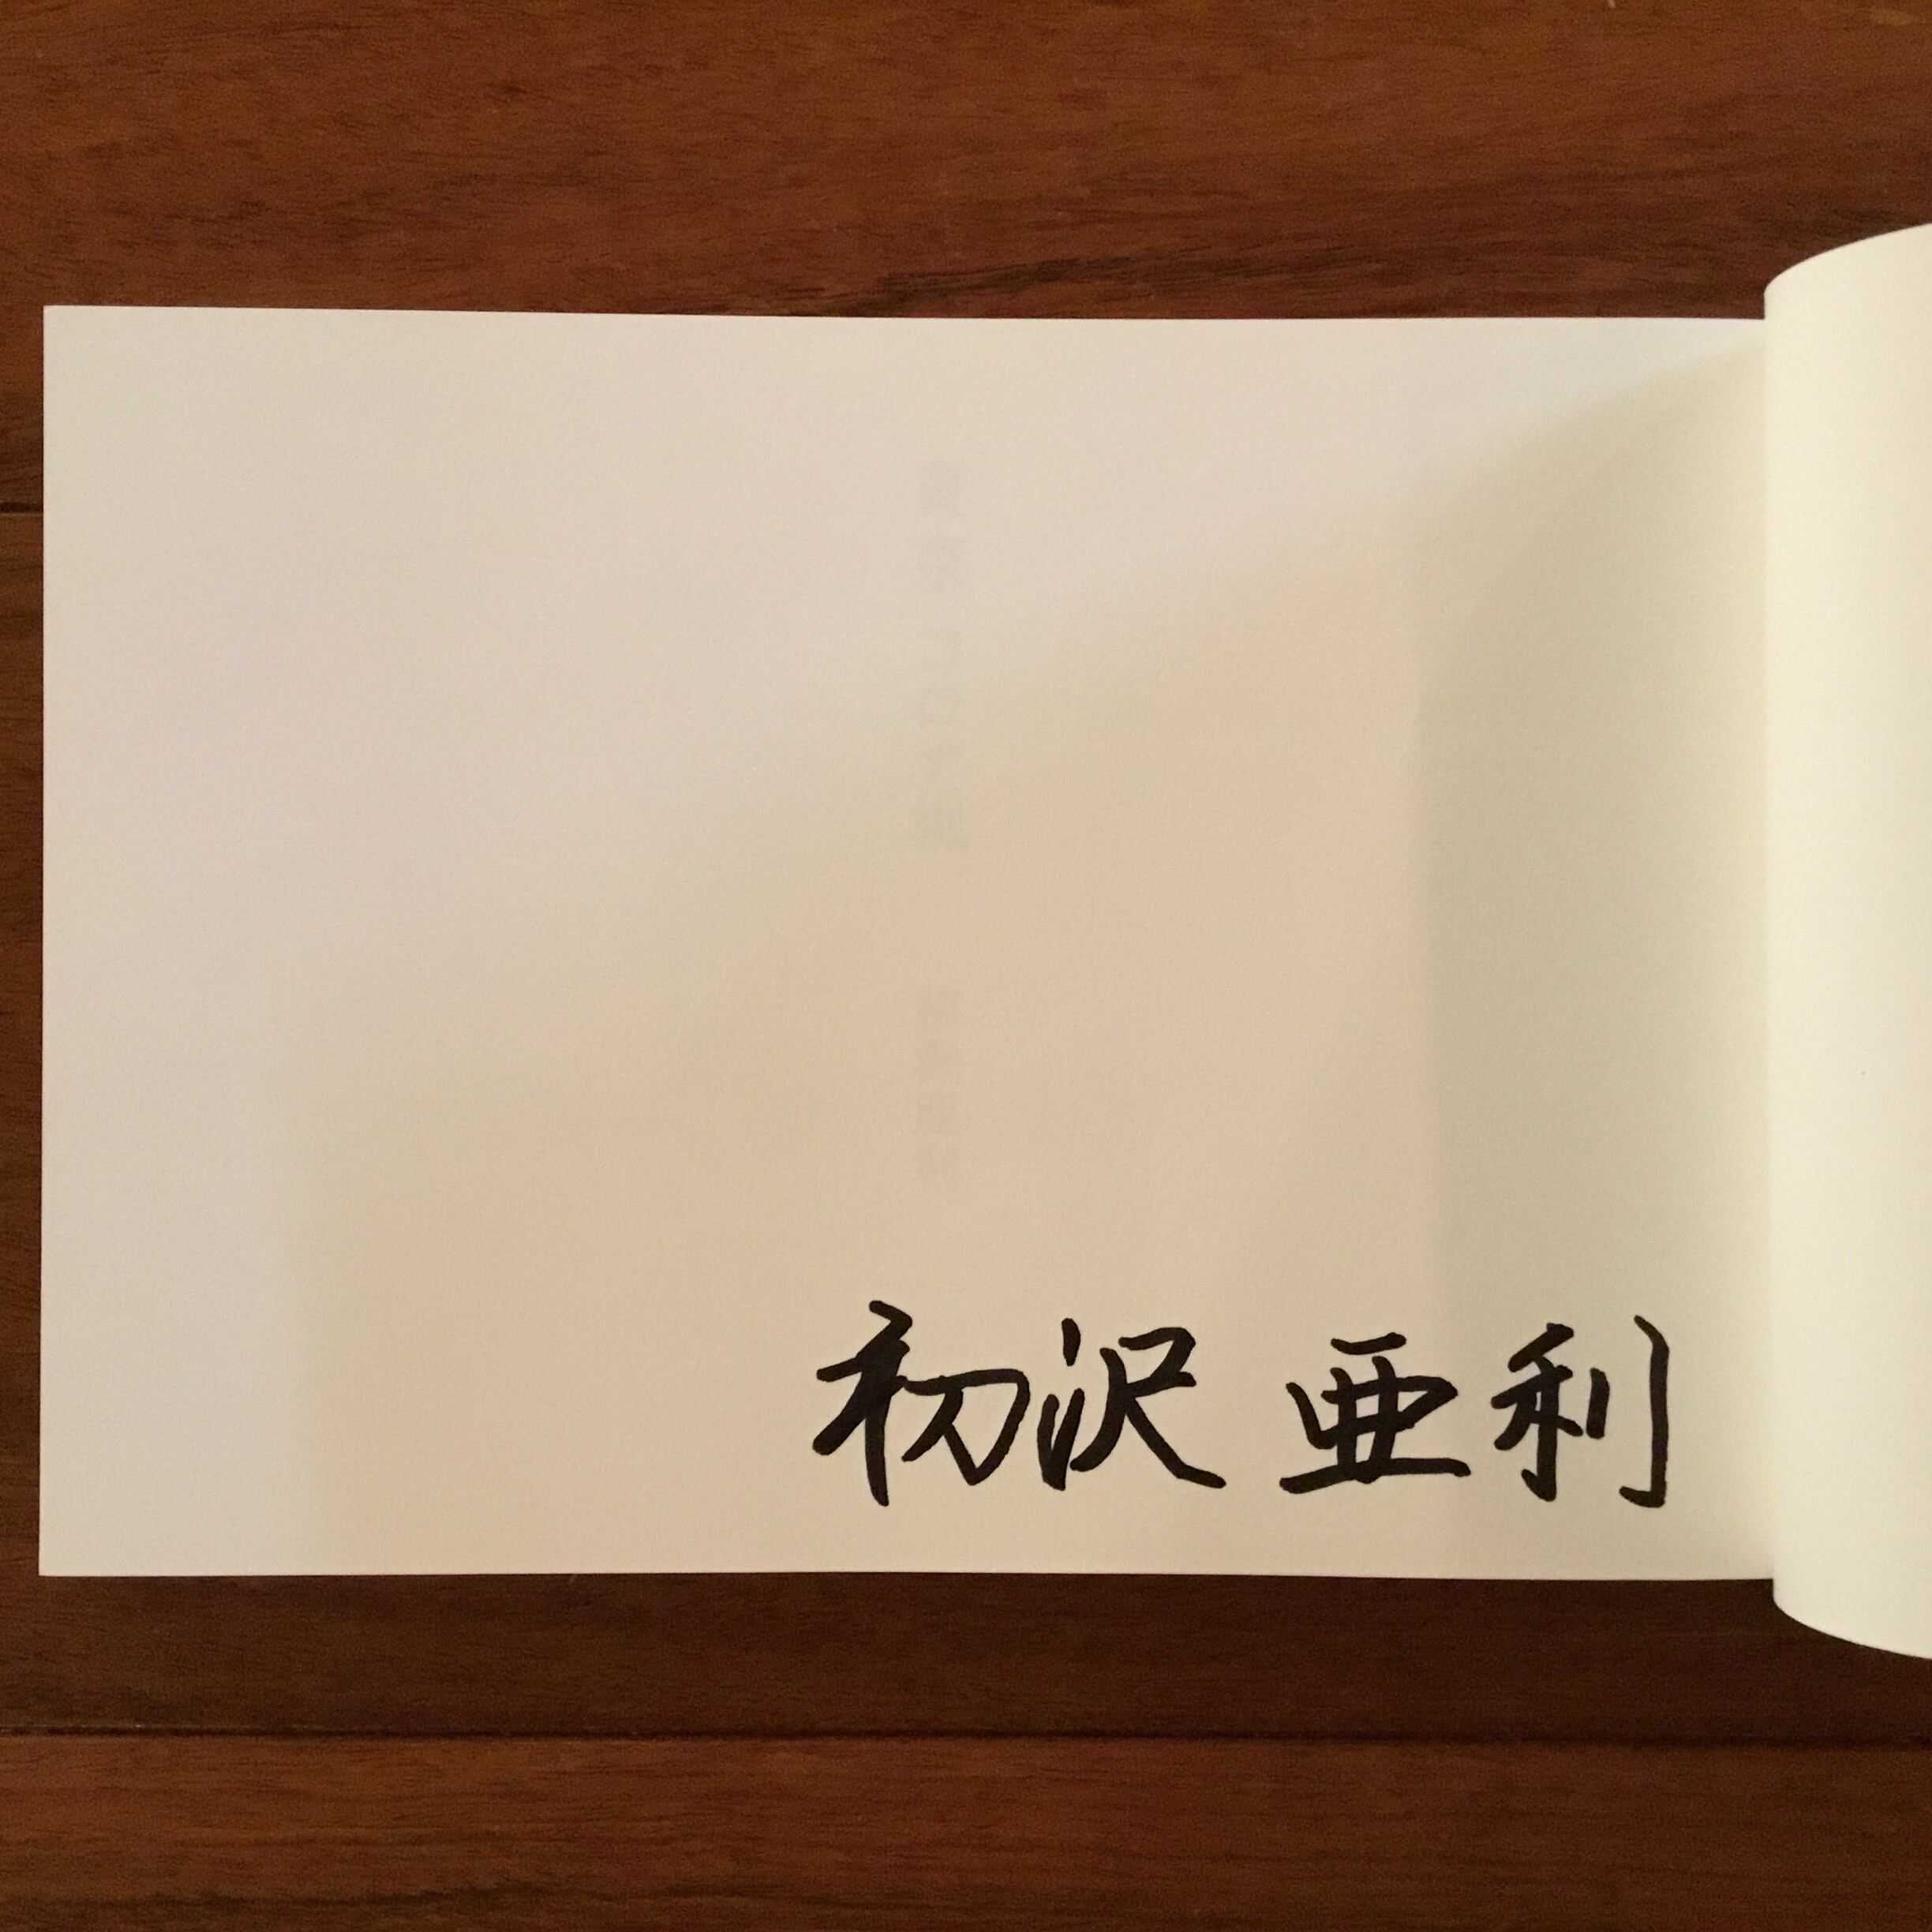 初沢 亜利